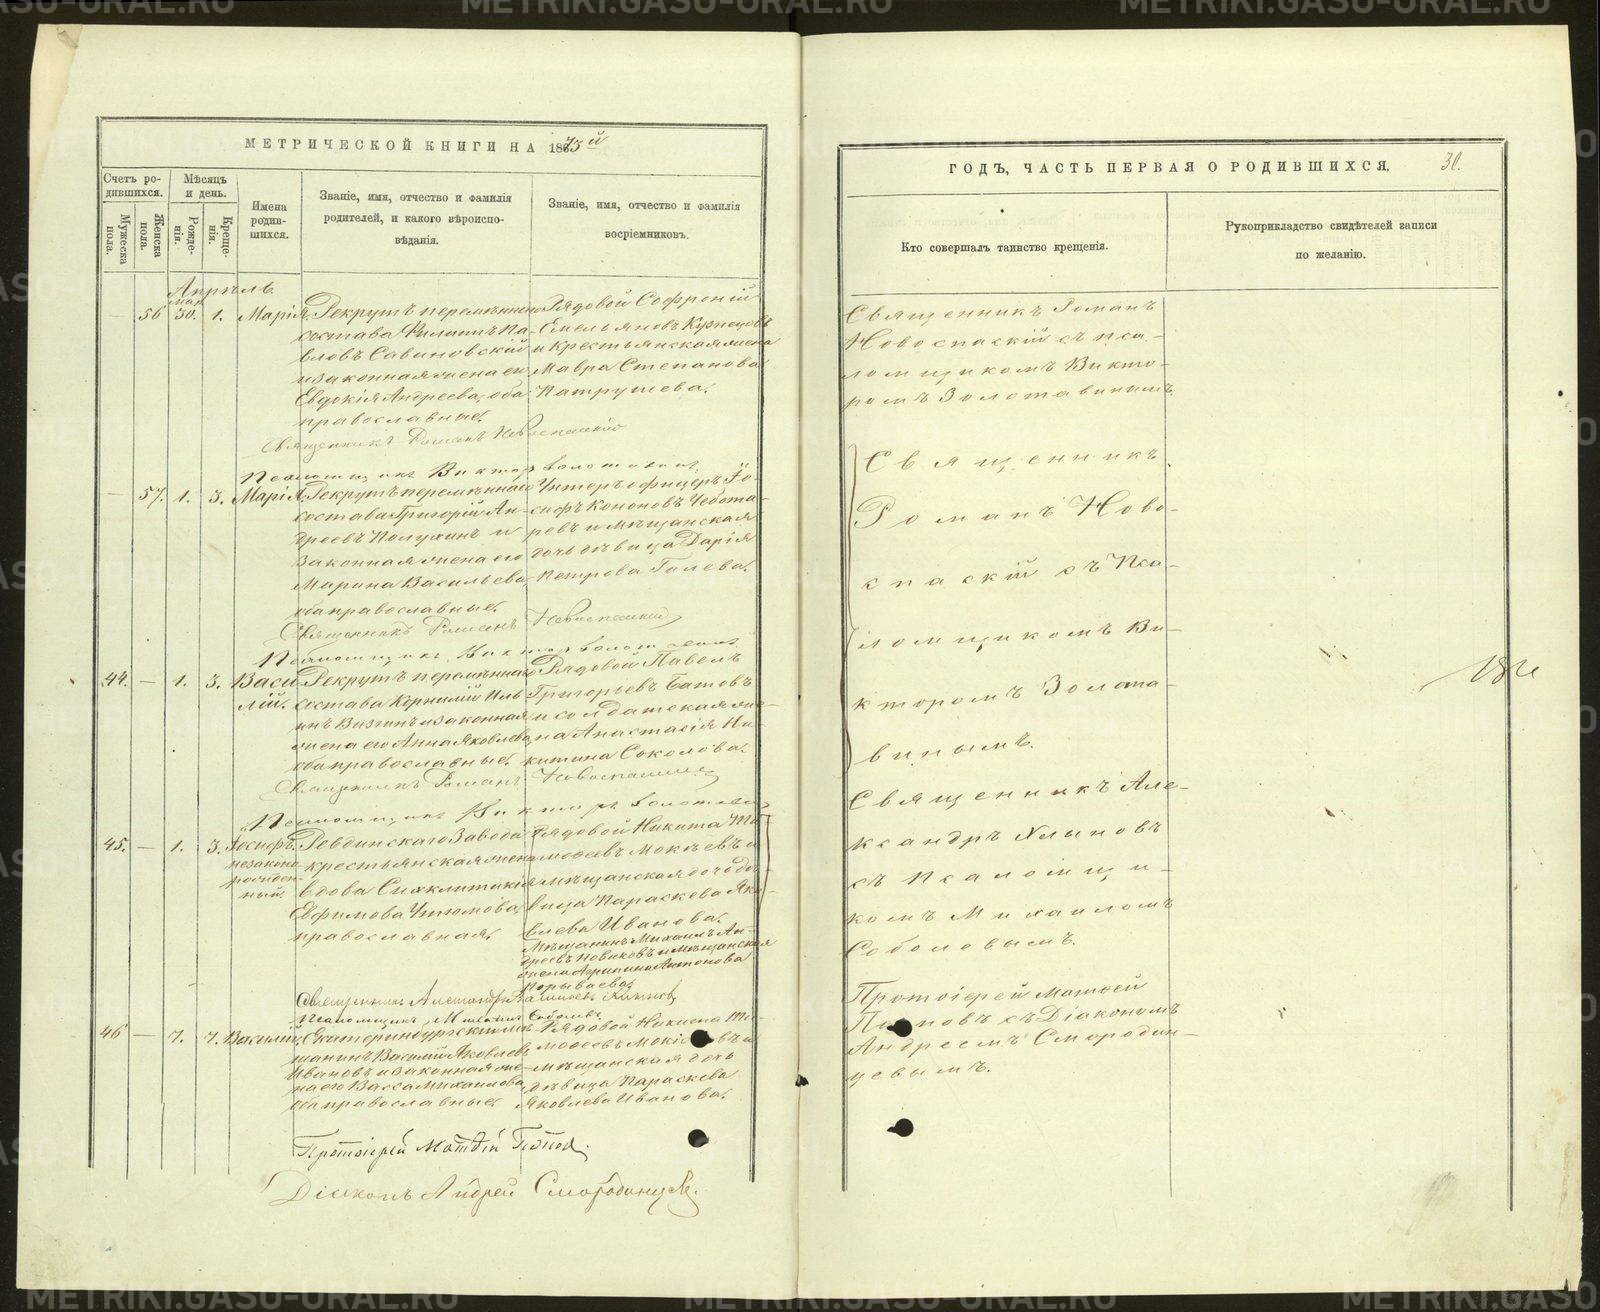 МЕТРИЧЕСКОЙ КНИГИ НА 1873й
Счетъ ро-
дившихся.
Мужеска пола.
Женска пола.
Мѣсяцъ
и день.
Рожде-
нія.
Креще-
нія.
Имена
родив-
шихся.
Званіе, имя, отчество и фамилія
родителей, и какого вѣроиспо-
вѣданія.
Званіе, имя, отчество и фамилія
воспріемниковъ.
Апрѣль.
— 56 мар. 30. 1. Марія.
Рекрутъ перемѣннаго
состава Филиппъ Па-
вловъ Савиновскій
и законная жена его
Евдокія Андреева, оба
православные.
Рядовой Софроній
Емельяновъ Кузнецовъ
и крестьянская жена
Мавра Степанова
Патрушева.
Священникъ Романъ Новоспасскій
Псаломщикъ Викторъ Золотавинъ
— 57. 1. 3. Марія.
Рекрутъ перемѣннаго
состава Григорій Ан-
дреевъ Полухинъ и
законная жена его
Марина Васильева,
оба православные.
Унтеръ офицеръ Іо-
сифъ Кононовъ Чебота-
ревъ и мѣщанская
дочь дѣвица Дарія
Петрова Гилева.
Священникъ Романъ Новоспасскій
Псаломщикъ Викторъ Золотавинъ
44. — 1. 3. Васи
лій.
Рекрутъ перемѣннаго
состава Корнилій Иль
инъ Вязгинъ и законная
жена его Анна Яковлева,
оба православные.
Рядовой Павелъ
Григорьевъ Батовъ
и солдатская же-
на Анастасія Ни-
китина Соколова.
Священникъ Романъ Новоспасскій
Псаломщикъ Викторъ Золотавинъ
45. — 1. 3. Іосифъ
незаконо
рожден-
ный.
Ревдинскаго Завода
крестьянская жена
вдова Синклитикія
Евфимова Утюмова,
православная.
Рядовой Никита Ти-
мофеевъ Мокѣевъ и
мѣщанская дочь дѣ-
вица Параскева Яко-
влева Иванова.
Мѣщанинъ Михаилъ Ан-
дреевъ Новиковъ и мѣщанская
жена Агрипина Антонова
Порываева.
Священникъ Александръ Хлыновъ
Псаломщикъ Михаилъ Соболевъ
46 — 7. 7. Василій.
Екатеринбургскій мѣ-
щанинъ Василій Яковлевъ
Ивановъ и законная же-
на его Васса Михаилова,
оба православные.
Рядовой Никита Ти-
мофеевъ Мокѣевъ и
мѣщанская дочь
дѣвица Параскева
Яковлева Иванова.
Протоіерей Матѳій Поповъ.
Діаконъ Андрей Смородинцевъ.
ГОДЪ, ЧАСТЬ ПЕРВАЯ О РОДИВШИХСЯ.
30.
Кто совершалъ таинство крещенія.
Рукоприкладство свидѣтелей записи
по желанію.
Священникъ Романъ
Новоспаскій съ пса-
ломщикомъ Викто-
ромъ Золотавинымъ
Священникъ
Романъ Ново-
спаскій съ Пса-
ломщикомъ Ви-
кторомъ Золота-
винымъ.
Священникъ Але-
ксандръ Хлыновъ
съ Псаломщи-
комъ Михаиломъ
Соболевымъ.
Протоіерей Матѳей
Поповъ съ Діакономъ
Андреемъ Смородин-
цевымъ.